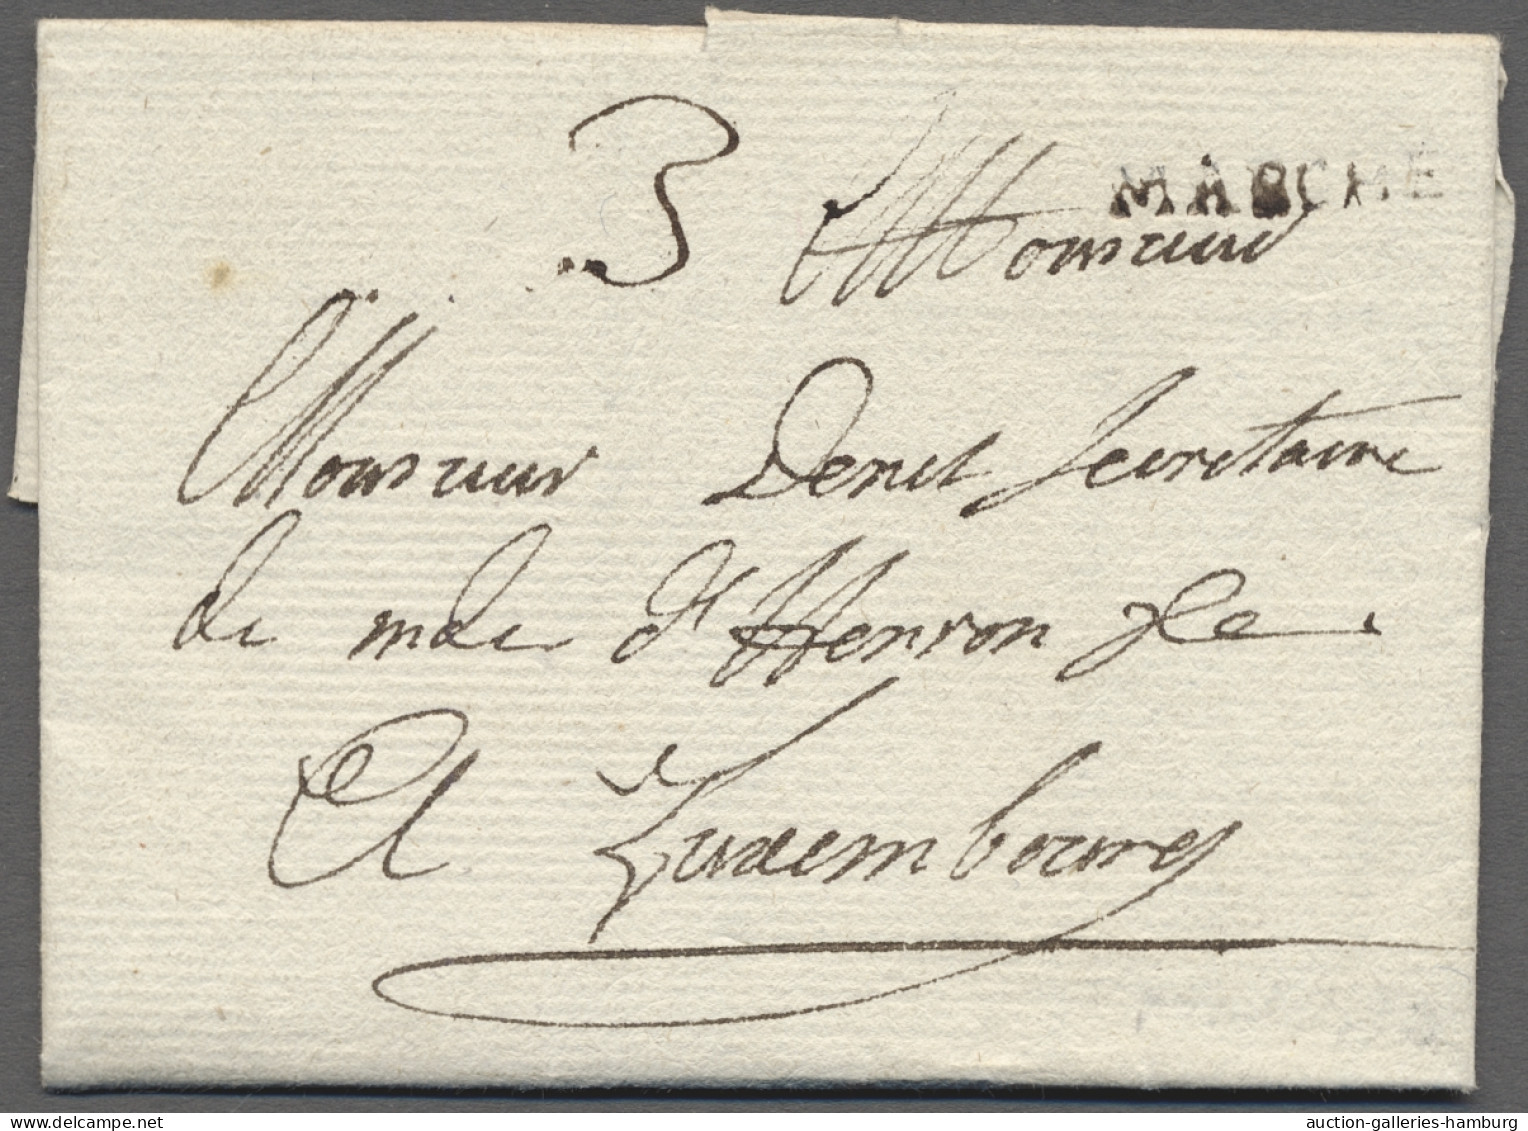 MARCHE
3 Monsieur
Monsieur Denis Secretaire
de mde d'Henron &a
A Luxembourg
auction-galleries-hamburg
delcampe.net